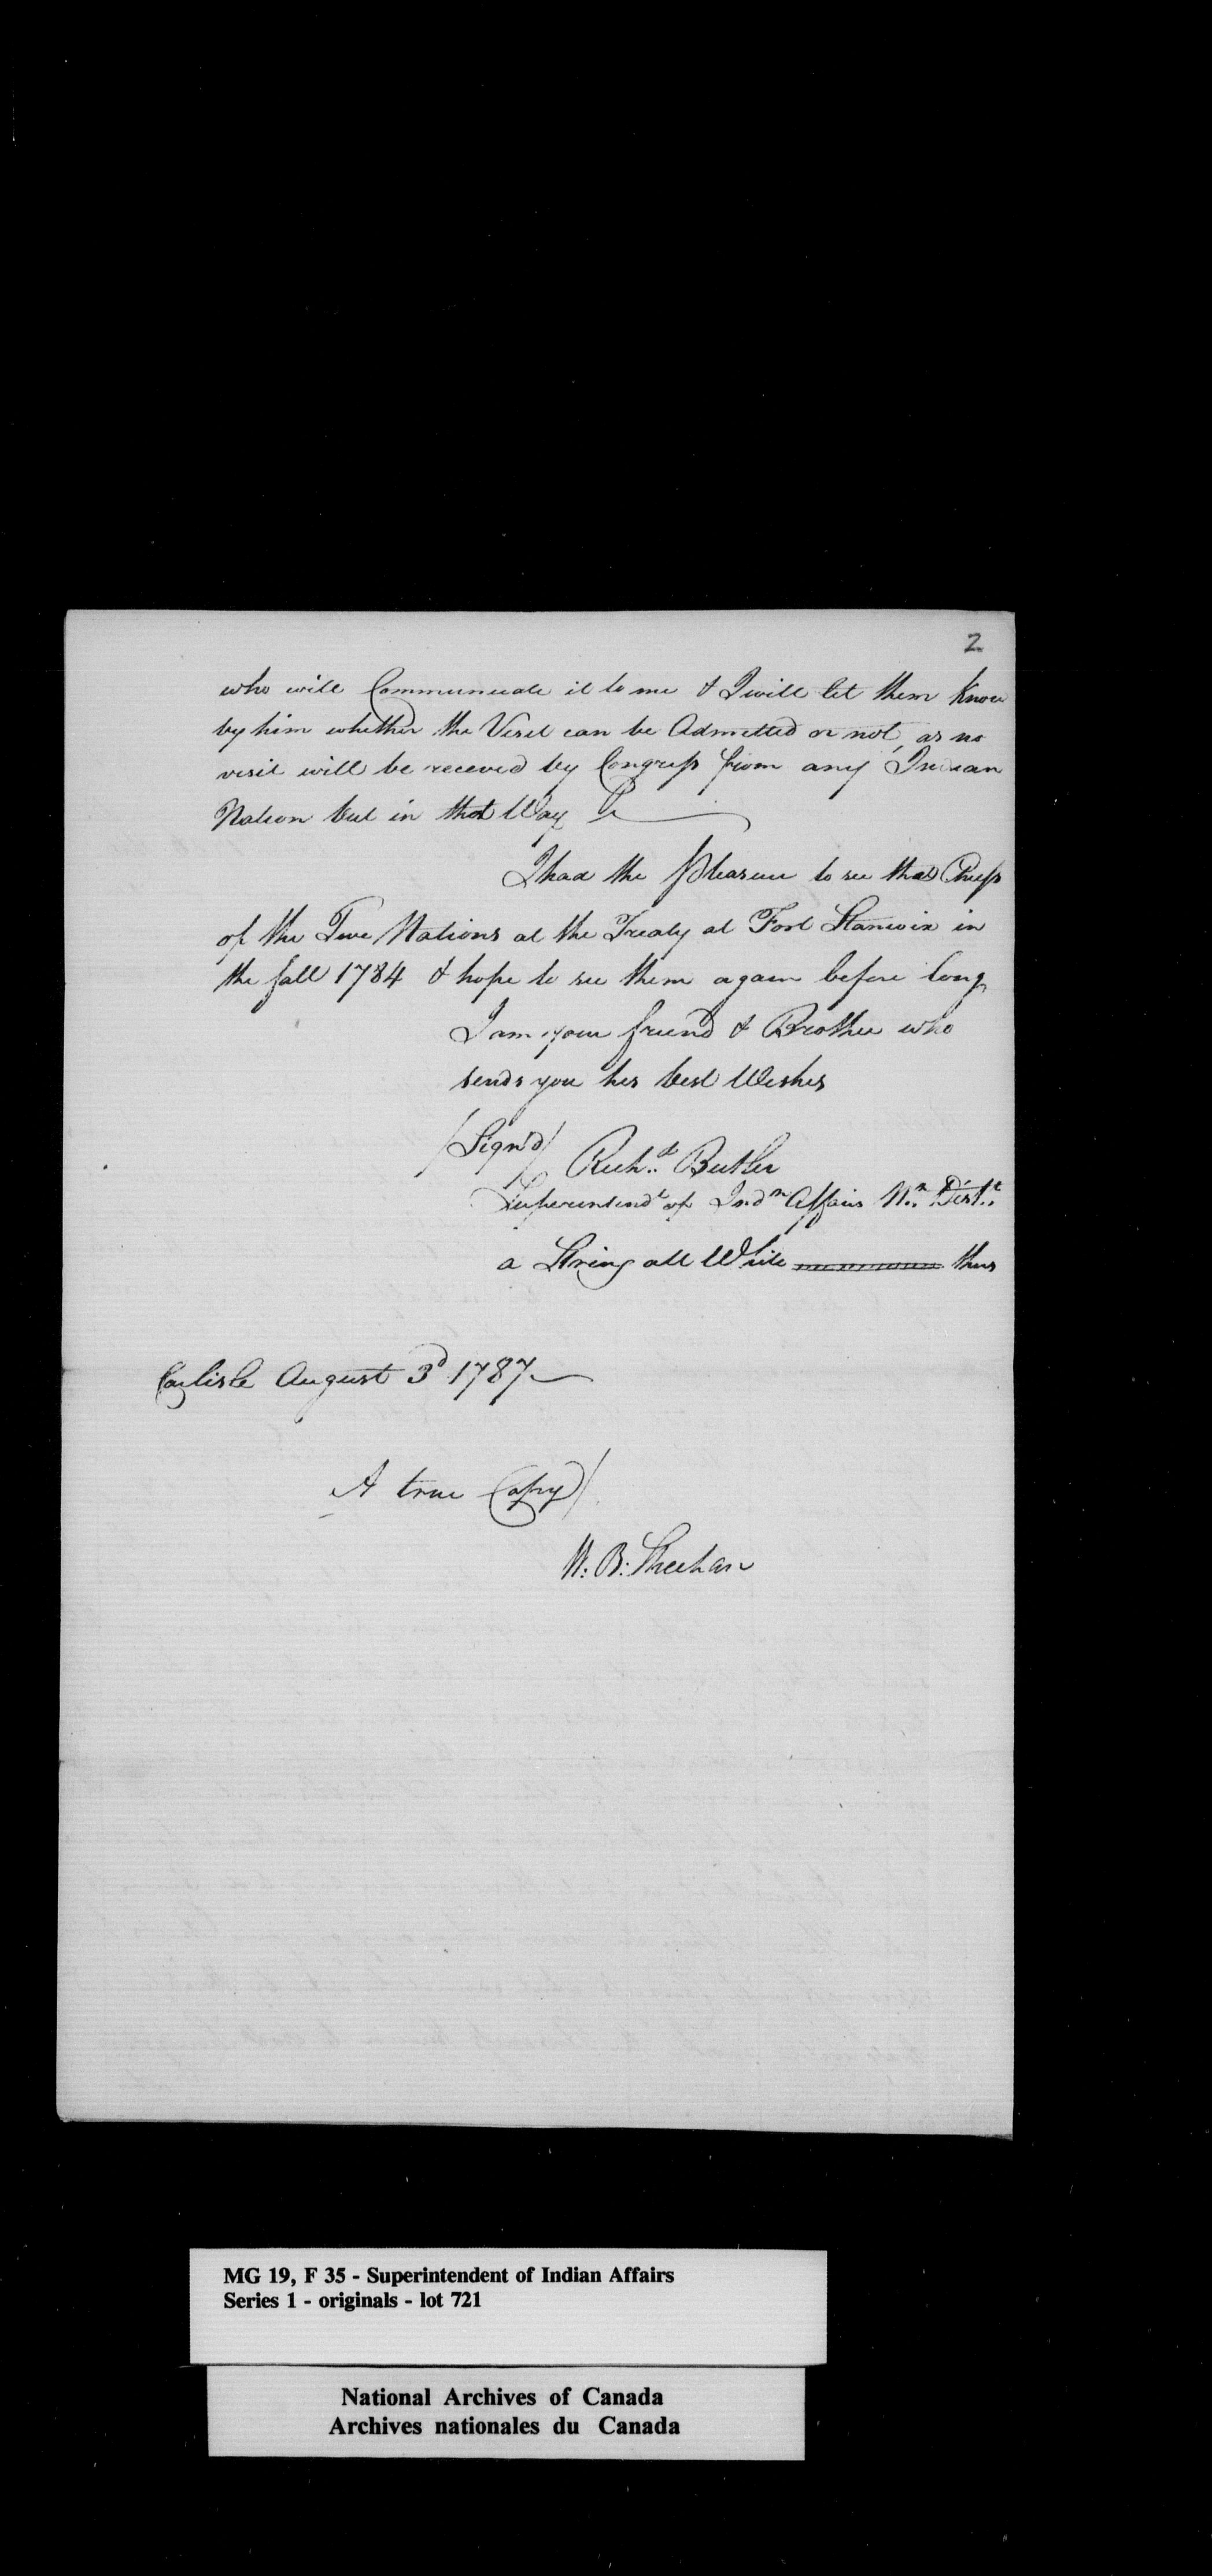 2
who will Communicate it to me & I will let them know
by him whether the Visit can be Admitted or not, as no
visit will be received by Congress from any Indian
Nation but in that Way
I had the pleasure to see the Chiefs
of the Nations at the Treaty at Fort Stanwix in
the fall 1784 & hope to see them again before long
I am your friend & Brother who
sends you his best Wishes
/Sign'd/ Rich.d Butler
Superintend.t of Ind.n Affairs N.n Dist.t
a String all White thus
Carlisle August 3d 1787
A true Copy/
W. B. Sheehan
MG 19, F 35 - Superintendent of Indian Affairs
Series 1 - originals - lot 721
National Archives of Canada
Archives nationales du Canada